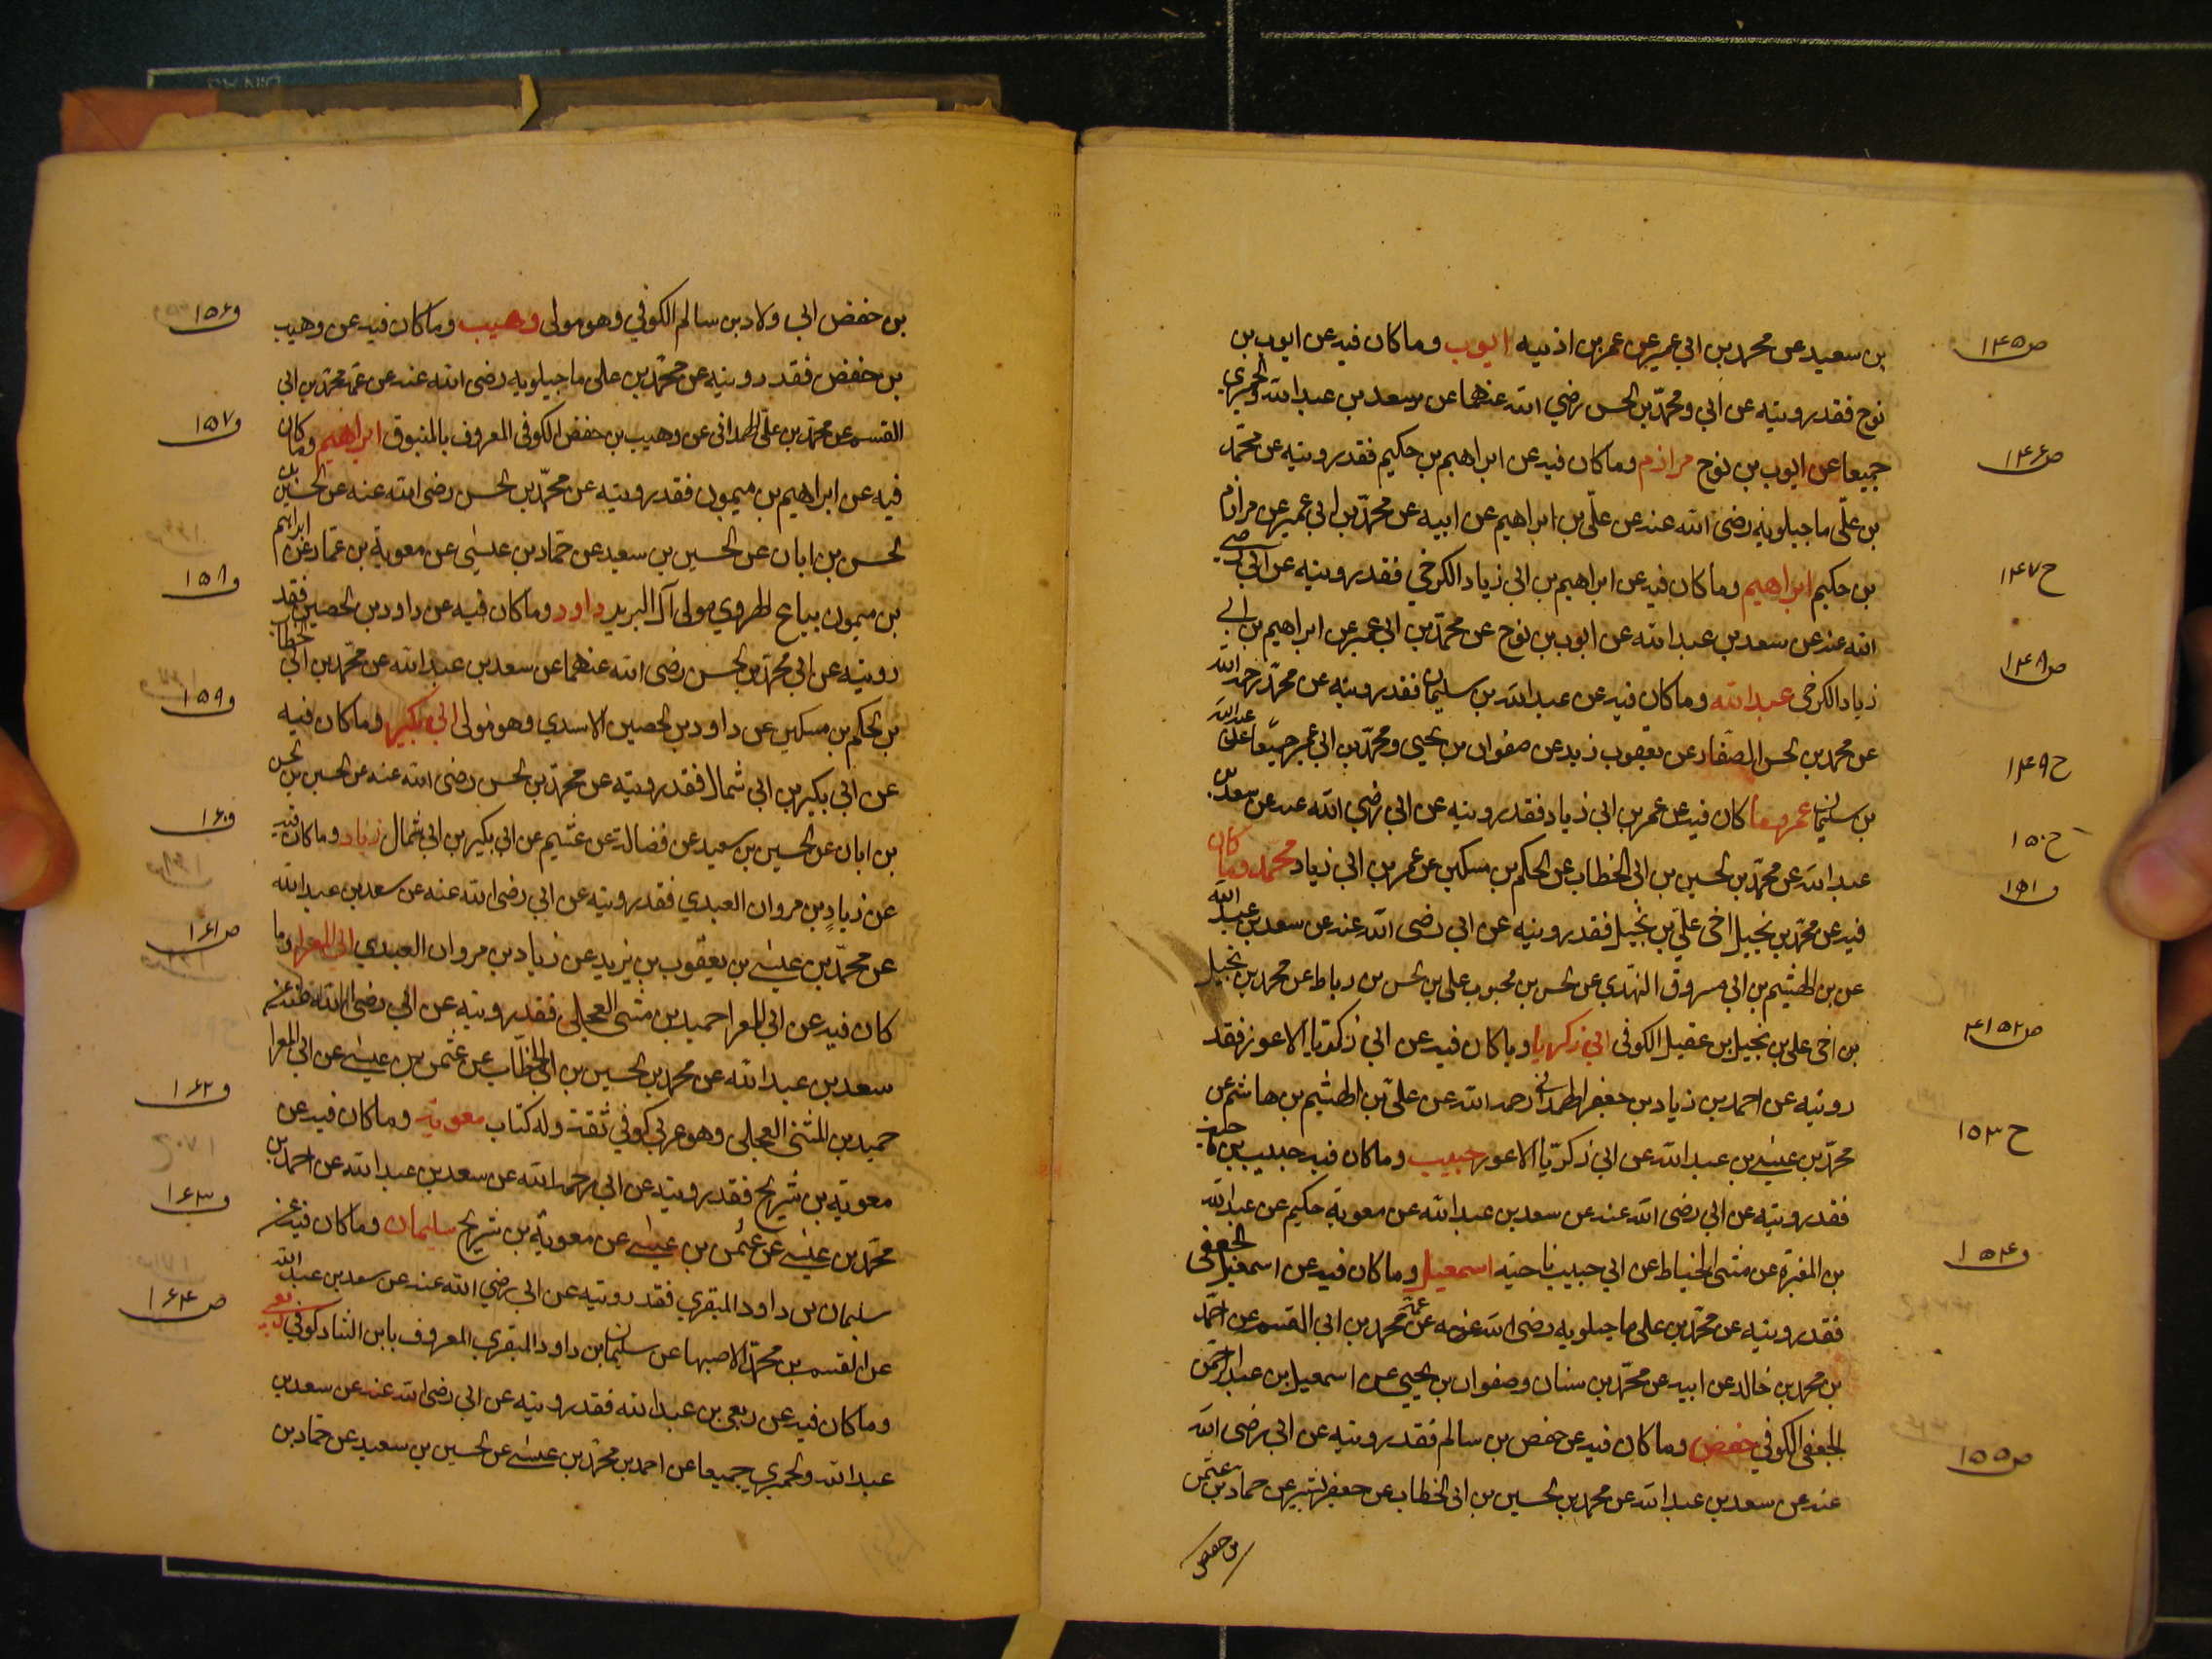 بن سعيد عن محمد بن ابي عمير عن عمر بن اذنيه ايوب وما كان فيه عن ايوب بن
ص ١٤٥
نوح فقد رويته عن ابي ومحمد بن الحسن رضي الله عنهما عن سعد بن عبد الله والحميري
جميعا عن ايوب بن نوح مرازم وما كان فيه عن ابراهيم بن حكيم فقد رويته عن محمد
ص ١٤٦
بن علي ماجيلويه رضى الله عنه عن علي بن ابراهيم عن ابيه عن محمد بن ابي عمير عن مرازم
بن حكيم ابراهيم وما كان فيه عن ابراهيم بن ابي زياد الكرخي فقد رويته عن ابي رضي
ح ١٤٧
الله عنه عن سعد بن عبد الله عن ايوب بن نوح عن محمد بن ابي عمير عن ابراهيم بن ابي
زياد الكرخى عبد الله وما كان فيه عن عبد الله بن سليمان فقد رويته عن محمد رحمه الله
ص ١٤٨
عن محمد بن الحسن الصفار عن يعقوب زيد عن صفوان بن يحيى ومحمد بن ابي عمير جميعا عن عبد الله
ح ١٤٩
بن سليمان عمر وما كان فيه عن عمر بن ابي زياد فقد رويته عن ابي رضي الله عنه عن سعد بن
عبد الله عن محمد بن الحسين بن ابي الخطاب عن الحكم بن مسكين عن عمر بن ابي زياد محمد وما كان
ح ١٥٠
فيه عن محمد بن بجيل اخى علي بن بجيل فقد رويته عن ابي رضى الله عنه عن سعد بن عبد الله
و ١٥١
عن بن الهثيم بن ابي مسروق النهدي عن الحسن بن محبوب علي بن الحسن بن رباط عن محمد بن بجيل
بن اخى علي بن بجيل ابن عقيل الكوفى ابي زكريا وما كان فيه عن ابي زكريا الاعور فقد
ص ١٥٢
رويته عن احمد بن زياد بن جعفر الهمداني رحمه الله عن علي بن الهثيم بن هاشم عن
محمد بن عيسى بن عبد الله عن ابي زكريا الاعور حبيب وما كان فيه حبيب بن
ح ١٥٣
فقد رويته عن ابي رضى الله عنه عن سعد بن عبد الله عن معوية حكيم عن عبد الله
بن المغيرة عن مثنى الحناط عن ابي حبيب ناحية اسمعيل وما كان فيه عن اسمعيل الجعفى
و ١٥٤
فقد رويته عن محمد بن على ماجيلويه رضى الله عنه عن عمه محمد بن ابي القسم عن احمد
بن محمد بن خالد عن ابيه عن محمد بن سنان وصفوان بن يحيى عن اسمعيل بن عبد الرحمن
الجعفى الكوفي حفص وما كان فيه عن حفص بن سالم فقد رويته عن ابي رضى الله
ص ١٥٥
عنه عن سعد بن عبد الله عن محمد بن الحسين بن ابى الخطاب عن جعفر بشير عن حماد بن عثمن
بن حفص
بن حفض ابى ولاد بن سالم الكوفي وهو مولى وهيب وما كان فيه عن وهيب
و ١٥٦
بن حفض فقد رويته عن محمد بن على ماجيلويه رضى الله عنه عن عمه محمد بن ابى
القسم عن محمد بن علي الهمدانى عن وهيب بن حفض الكوفى المعروف بالمنبوق ابراهيم وما كان
و ١٥٧
فيه عن ابراهيم بن ميمون فقد رويته عن محمد بن الحسن رضى الله عنه عن الحسين بن
الحسن بن ابان عن الحسين بن سعيد عن حماد بن عيسى عن معوية بن عمار عن ابراهيم
بن ميمون بياع الهروي مولى آل البريد داود وما كان فيه عن داود بن الحصين فقد
و ١٥٨
رويته عن ابي محمد بن الحسن رضى الله عنهما عن سعد بن عبد الله عن محمد بن ابى الخطاب
بن الحكم بن مسكين عن داود بن الحصين الاسدي وهو مولى ابي بكير وما كان فيه
و ١٥٩
عن ابي بكير بن ابى شمال فقد رويته عن محمد بن الحسن رضى الله عنه عن الحسين بن الحسن
بن ابان عن الحسين بن سعيد عن فضالة عن عثيم عن ابي بكير بن ابي شمال زياد وما كان فيه
و ١٦٠
عن زياد بن مروان العبدي فقد رويته عن ابي رضى الله عنه عن سعد بن عبد الله
عن محمد بن عيسى بن يعقوب بن يزيد عن زياد بن مروان العبدي ابي المعرا وما
ص ١٦١
كان فيه عن ابي المعرا حميد بن مثنى العجلى فقد رويته عن ابي رضى الله عنه عن
سعد بن عبد الله عن محمد بن الحسين بن ابى الخطاب عن عثمن بن عيسى عن ابي المعرا
حميد بن المثنى العجلى وهو عربي كوفي ثقة وله كتاب معوية وما كان فيه عن
و ١٦٢
معوية بن شريح فقد رويته عن ابى رحمه الله عن سعد بن عبد الله عن احمد بن
محمد بن عيسى عن عثمن بن عيسى عن معوية بن شريح سليمان وما كان فيه عن
و ١٦٣
سليمان بن داود المقري فقد رويته عن ابى رضي الله عنه عن سعد بن عبد الله
عن القسم بن محمد الاصبها عن سليمان بن داود المقري المعروف بابن الشادكوني ربعي
ص ١٦٤
وما كان فيه عن ربعي بن عبد الله فقد رويته عن ابي رضى الله عنه عن سعد بن
عبد الله والحميري جميعا عن احمد بن محمد بن عيسى عن الحسين بن سعيد عن حماد بن